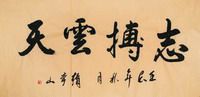 志搏雲天
壬辰年秋月 山